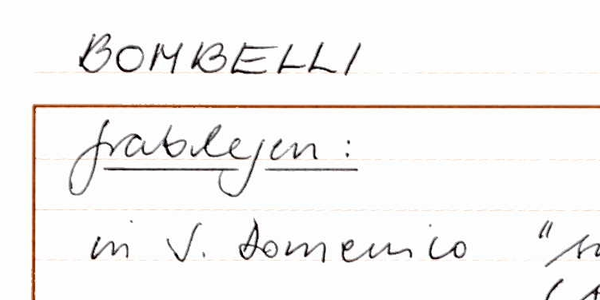 BOMBELLI
Grablegen:
in S. Domenico